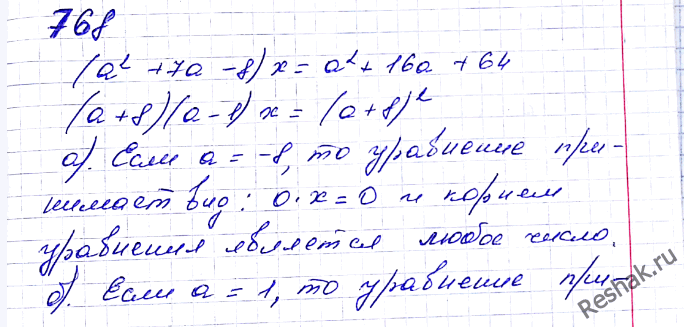 768
(a² + 7a - 8) x = a² + 16a + 64
(a + 8)(a - 1) x = (a + 8)²
а). Если a = -8, то уравнение при-
нимает вид: 0 · x = 0 и корнем
уравнения является любое число.
б). Если a = 1, то уравнение при-
Reshak.ru